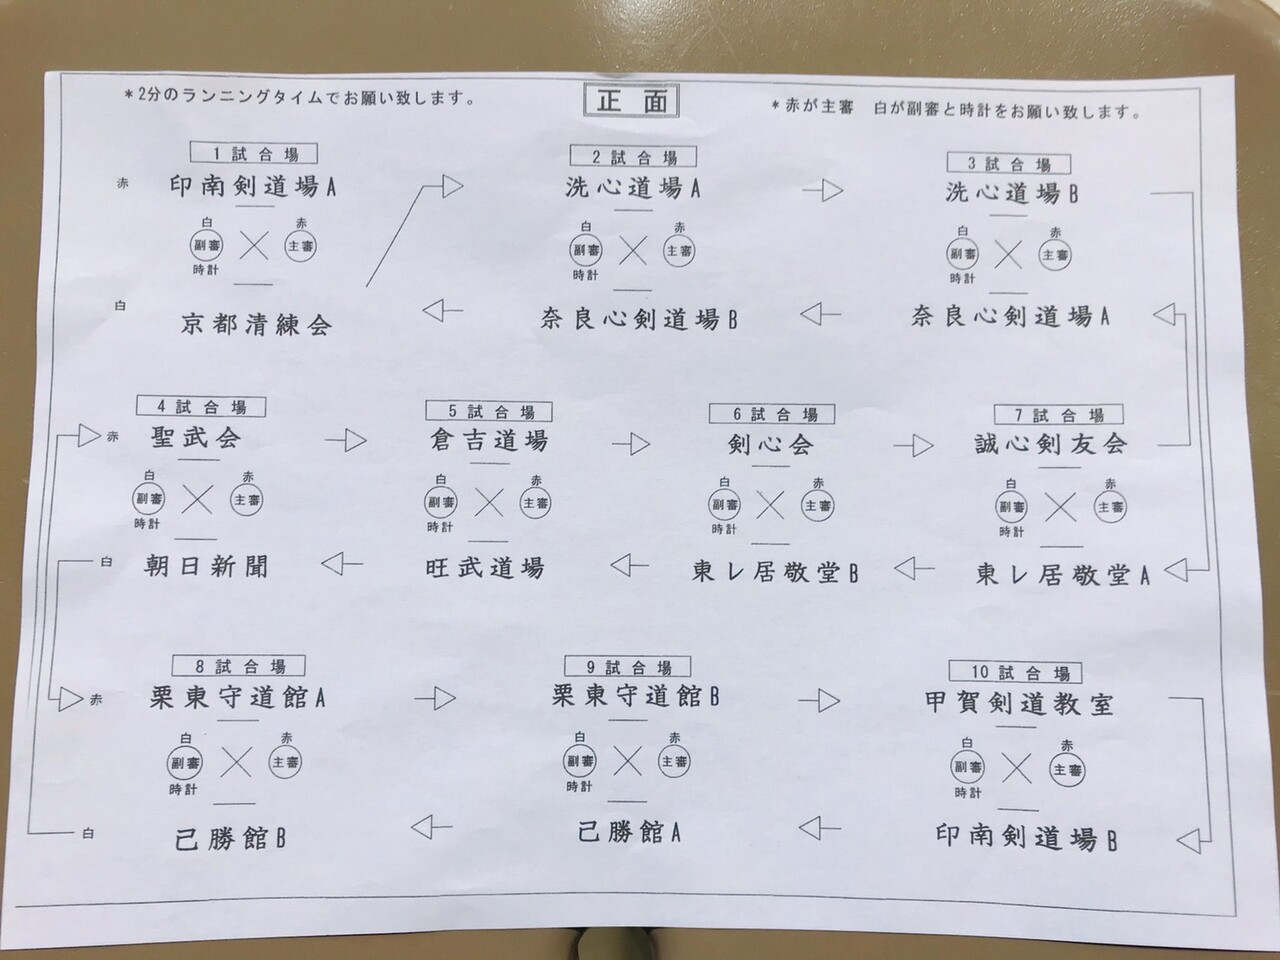 *2分のランニングタイムでお願い致します。
正面
*赤が主審 白が副審と時計をお願い致します。
1試合場
2試合場
3試合場
赤
印南剣道場A
洗心道場A
洗心道場B
白 赤
副審 主審
時計
白 赤
副審 主審
時計
白 赤
副審 主審
時計
白
京都清練会
奈良心剣道場B
奈良心剣道場A
4試合場
5試合場
6試合場
7試合場
赤
聖武会
倉吉道場
剣心会
誠心剣友会
白 赤
副審 主審
時計
白 赤
副審 主審
時計
白 赤
副審 主審
時計
白 赤
副審 主審
時計
白
朝日新聞
旺武道場
東レ居敬堂B
東レ居敬堂A
8試合場
9試合場
10試合場
赤
栗東守道館A
栗東守道館B
甲賀剣道教室
白 赤
副審 主審
時計
白 赤
副審 主審
時計
白 赤
副審 主審
時計
白
己勝館B
己勝館A
印南剣道場B